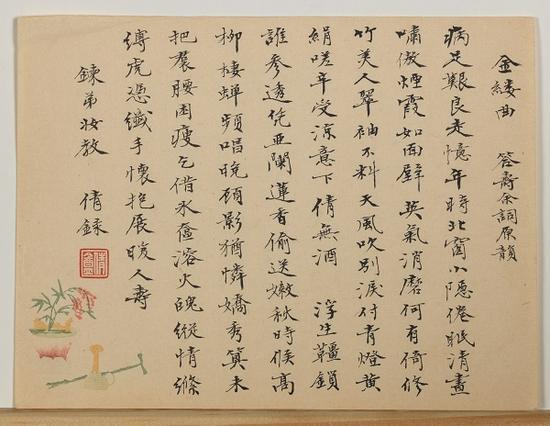 金縷曲 答壽余詞原韻
病足艱良走憶年時北窗小隱倦眠清晝
嘯傲煙霞如面壁 英氣消磨何有倚修
竹美人翠袖不料天風吹別淚付青燈黃
絹嗟年受涼意下倩無酒 浮生韁鎖
誰參透凭亞闌蓮香偷送嫩秋時候高
柳棲蟬頻唱晚顧影猶憐嬌秀算未
把裠腰困瘦乞借冰奩溶火魄縱情絛
縛虎憑纖手懷抱展暖人壽
鍊弟妝教 倩錄